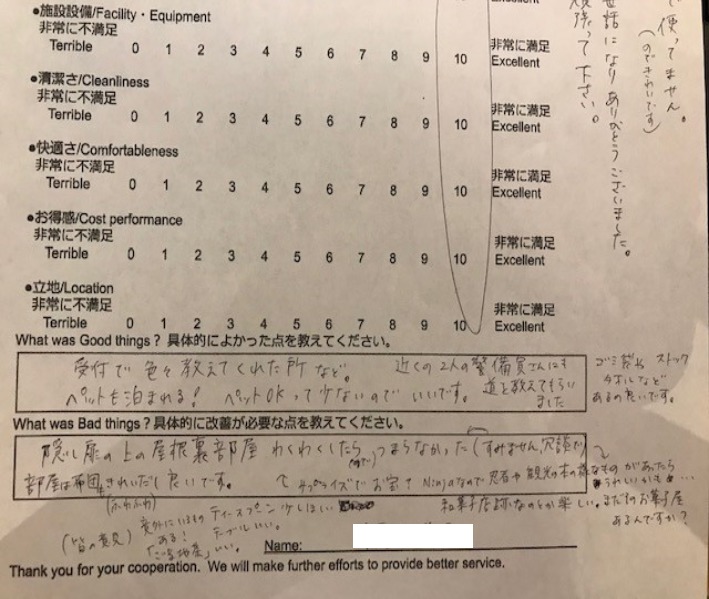 Excellent
●施設設備/Facility・Equipment
非常に不満足
Terrible 0 1 2 3 4 5 6 7 8 9 10 非常に満足 Excellent
●清潔さ/Cleanliness
非常に不満足
Terrible 0 1 2 3 4 5 6 7 8 9 10 非常に満足 Excellent
●快適さ/Comfortableness
非常に不満足
Terrible 0 1 2 3 4 5 6 7 8 9 10 非常に満足 Excellent
●お得感/Cost performance
非常に不満足
Terrible 0 1 2 3 4 5 6 7 8 9 10 非常に満足 Excellent
●立地/Location
非常に不満足
Terrible 0 1 2 3 4 5 6 7 8 9 10 非常に満足 Excellent
使ってません。
(のできれいです)
世話になりありがとうございました。
頑張って下さい。
What was Good things? 具体的によかった点を教えてください。
受付で色々教えてくれた所など。
ペットを泊まれる! ペットOKって少ないのでいいです。
近くの2人の警備員さんにも
道を教えてもらい
ました
ゴミ袋や ストック
タオルなど
あるの良いです。
What was Bad things? 具体的に改善が必要な点を教えてください。
隠し扉の上の屋根裏部屋 わくわくしたら つまらなかった (すみません、冗談で)
部屋は布団もきれいだし良いです。
サプライズでお宝? Ninjaなので忍者や観光の本の様なものがあったら
うれしいかも…
(ふわふわ)
(皆の意見) 意外にいまもの ティースプーン 少しほしい
ある! テーブルいい。
「ご当地産」いい。
和菓子店跡いなのとか楽しい。まだそのお菓子屋
あるんですか?
Name:
Thank you for your cooperation. We will make further efforts to provide better service.